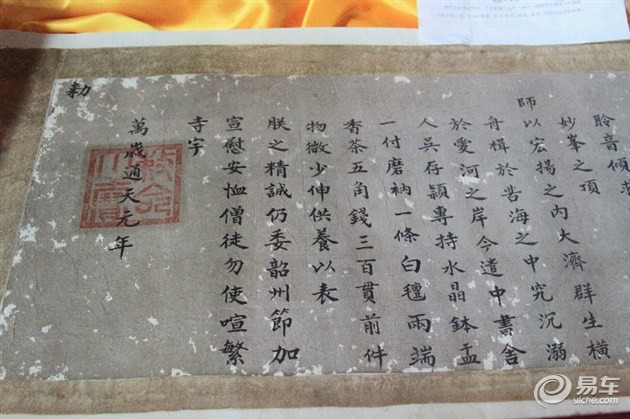 聆音傾
妙峯之頂
師以宏揚之内大濟群生橫
舟楫於苦海之中究沉溺
於愛河之岸今遣中書舍
人吳存穎專持水晶鉢盂
一付磨衲一條白氊兩端
香茶五角錢三百貫前件
物微少伸供養以表
朕之精誠仍委韶州節加
宣慰安恤僧徒勿使喧繁
寺宇
萬歲通天元年
勑
易车
yiche.com